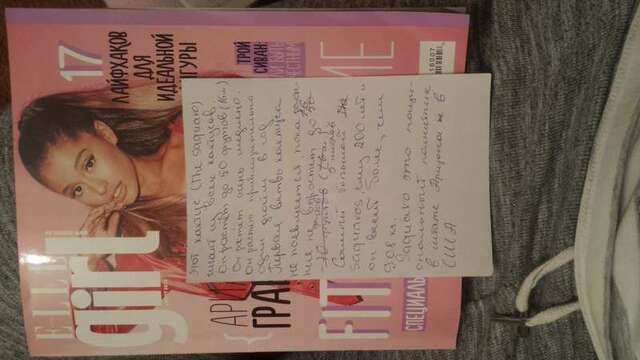 ELLE
girl
17
ЛАЙФХАКОВ
ДЛЯ
ИДЕАЛЬНОЙ
ФИГУРЫ
АРИ
ГРА
ТРОЙ
СИВАН:
ЧЕСТНЫМ
FIT
ME
СПЕЦИАЛЬ
16007
Этот кактус (The Saguaro)
гигант из всех кактусов.
Он растет до 50 футов (16м)
Он растет очень медленно.
Он растет приблизительно
один дюйм в год.
Первая ветвь кактуса
не появляется пока
не вырастет до
5 метров
Самый большой
Saguaros ему 200 лет и
он весит более, чем
9,08 кг.
Saguaro это наци-
ональный памятник
в штате Аризона в
США